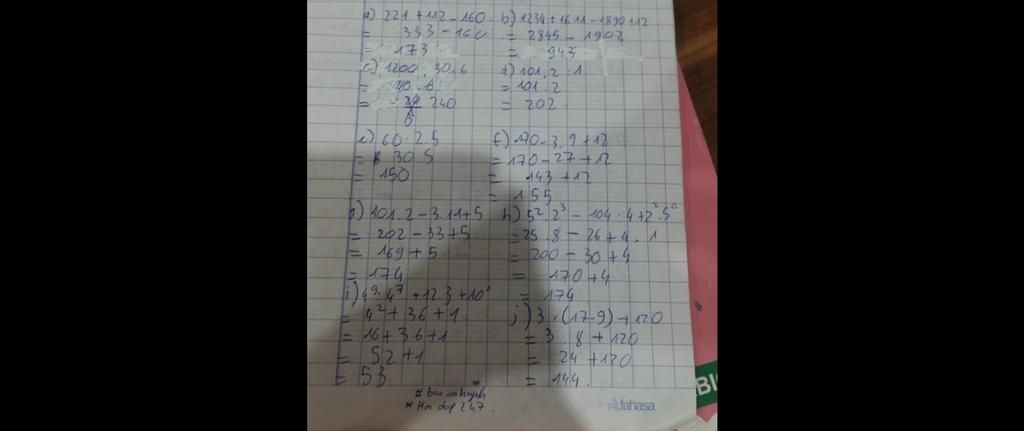 a) 221 + 112 - 160
= 333 - 160
= 173
b) 1234 + 1611 - 1890 + 12
= 2845 - 1902
= 943
c) 1200 : 30.6
= 40.6
= 240
d) 101.2 : 1
= 101.2
= 202
e) 60 : 2.5
= 30 5
= 150
f) 170 - 3.9 + 12
= 170 - 27 + 12
= 143 + 12
= 155
g) 101.2 - 3.11 + 5
= 202 - 33 + 5
= 169 + 5
= 174
h) 5².2³ - 104 : 4 + 2².5⁰
= 25.8 - 26 + 4.1
= 200 - 30 + 4
= 170 + 4
= 174
i) 4⁹:4⁷ + 12.3 + 10⁰
= 4² + 36 + 1
= 16 + 36 + 1
= 52 + 1
= 53
j) 3.(17-9) + 120
= 3.8 + 120
= 24 + 120
= 144.
* Hoi dap 247.
fahasa